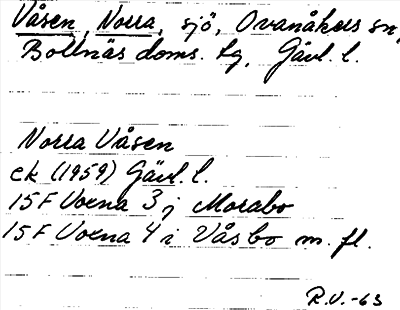 Våsen, Norra, sjö, Ovanåkers sn,
Bollnäs doms. tg, Gävl. l.
Norra Våsen
ek (1959) Gävl. l.
15 F Voxna 3 j Morabo
15 F Voxna 4 i Våsbo m. fl.
R.V.-63